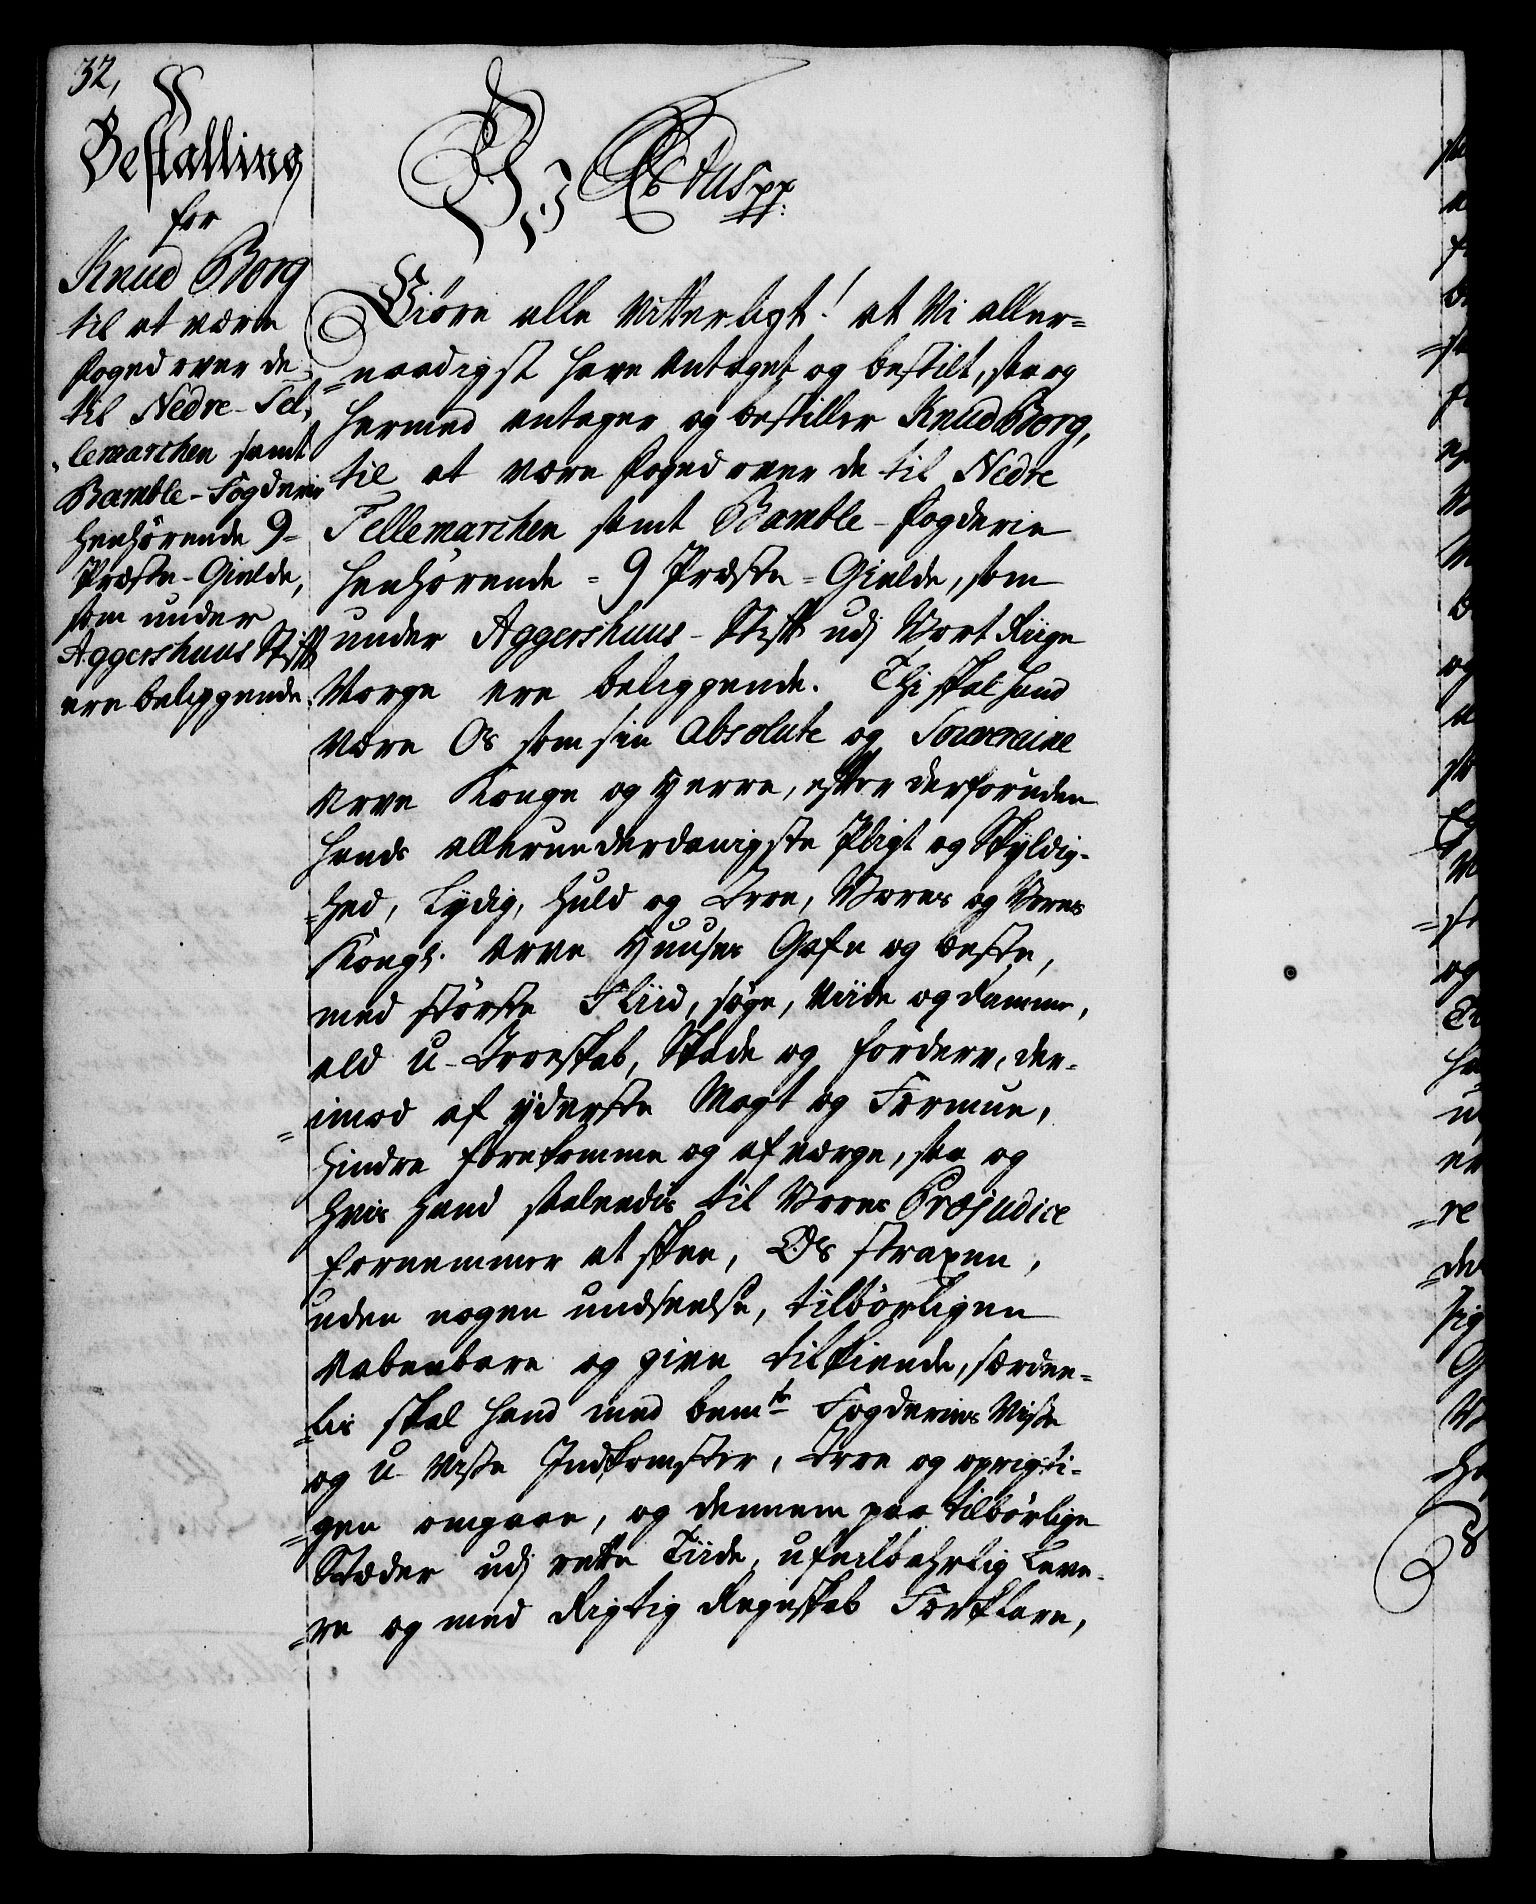 32,
Bestalling
for
Knud Borg
til at være
foged over de
til Nedre-Tel,
„lemarchen samt
Bamble-Fogderie
henhørende 9=
Præste-Gielde,
som under
Aggershuus Stift
ere beliggende.
Vi Chr: 6tus pp:
Giøre alle Vitterligt! at Vi aller=
=naadigst have antaget og bestilt, saa og
hermed antager og bestiller Knud Borg,
til at være foged over de til Nedre
Tellemarchen samt Bamble-fogderie
henhørende = 9 Præste=Gielde, som
under Aggershuus-Stift udj Vort Riige
Norge ere beliggende. Thi skal hand
være Os som sin absolute og Souveraine
Arve Konge og Herre, efter derforuden
hands allerunderdanigste Pligt og Skyldig-
=hed, Lydig, huld og Troe, Vores og Vores
Kongl. Arve Huuses Gafn og beste,
med største Fliid, søge, Viide og Ramme,
ald U-Troeskab, Skade og fordærv, der-
=imod af yderste Magt og Formue,
hindre forekomme og afværge, saa og
hvis hand saaleedis til Vores Præjudice
fornemmer at skee, Os straxen,
uden nogen undseelse, tilbørligen
Aabenbare og give tilkiende, særdee-
=lis skal hand med bemte Fogderies Visse
og U-Visse Indkomster, Troe og oprigti-
=gen omgaae, og dennem paa tilbørlige
Stæder udj rette Tiide, ufeilbahrlig Leve-
=re og med Rigtig Regnskab Forklare,